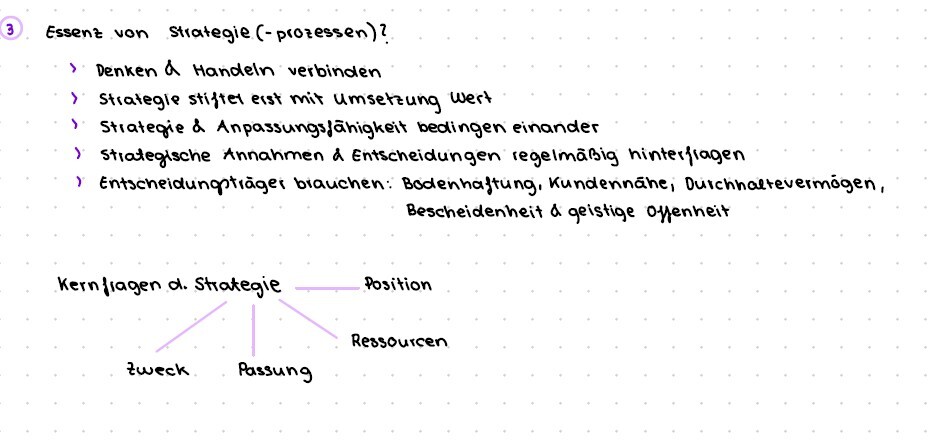 3 Essenz von Strategie (-prozessen)?
› Denken & Handeln verbinden
› Strategie stiftet erst mit Umsetzung Wert
› Strategie & Anpassungsfähigkeit bedingen einander
› Strategische Annahmen & Entscheidungen regelmäßig hinterfragen
› Entscheidungträger brauchen: Bodenhaftung, Kundennähe, Durchhaltevermögen,
Bescheidenheit & geistige Offenheit
Kernfragen d. Strategie Position
Ressourcen
Zweck Passung